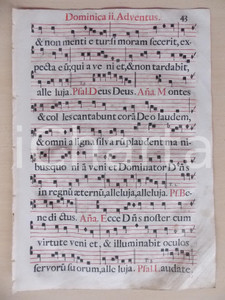 Dominica ii. Adventus. 43
& non menti e tur: si moram fecerit, ex-
pecta eū; qui a ve ni et, & non tardabit,
alle luja. Psal Deus Deus. Aña. M ontes
& col les cantabunt corā De o laudem,
& omni a signa silva rū plaudent ma ni-
bus: quo ni ā veni et Dominator Dñs
in regnū æternū, alleluja, alleluja. Psl Be-
ne di ctus. Aña. E cce Dñs noster cum
virtute veni et, & illuminabit oculos
servorū su orum, alle luja. Psal Laudate.